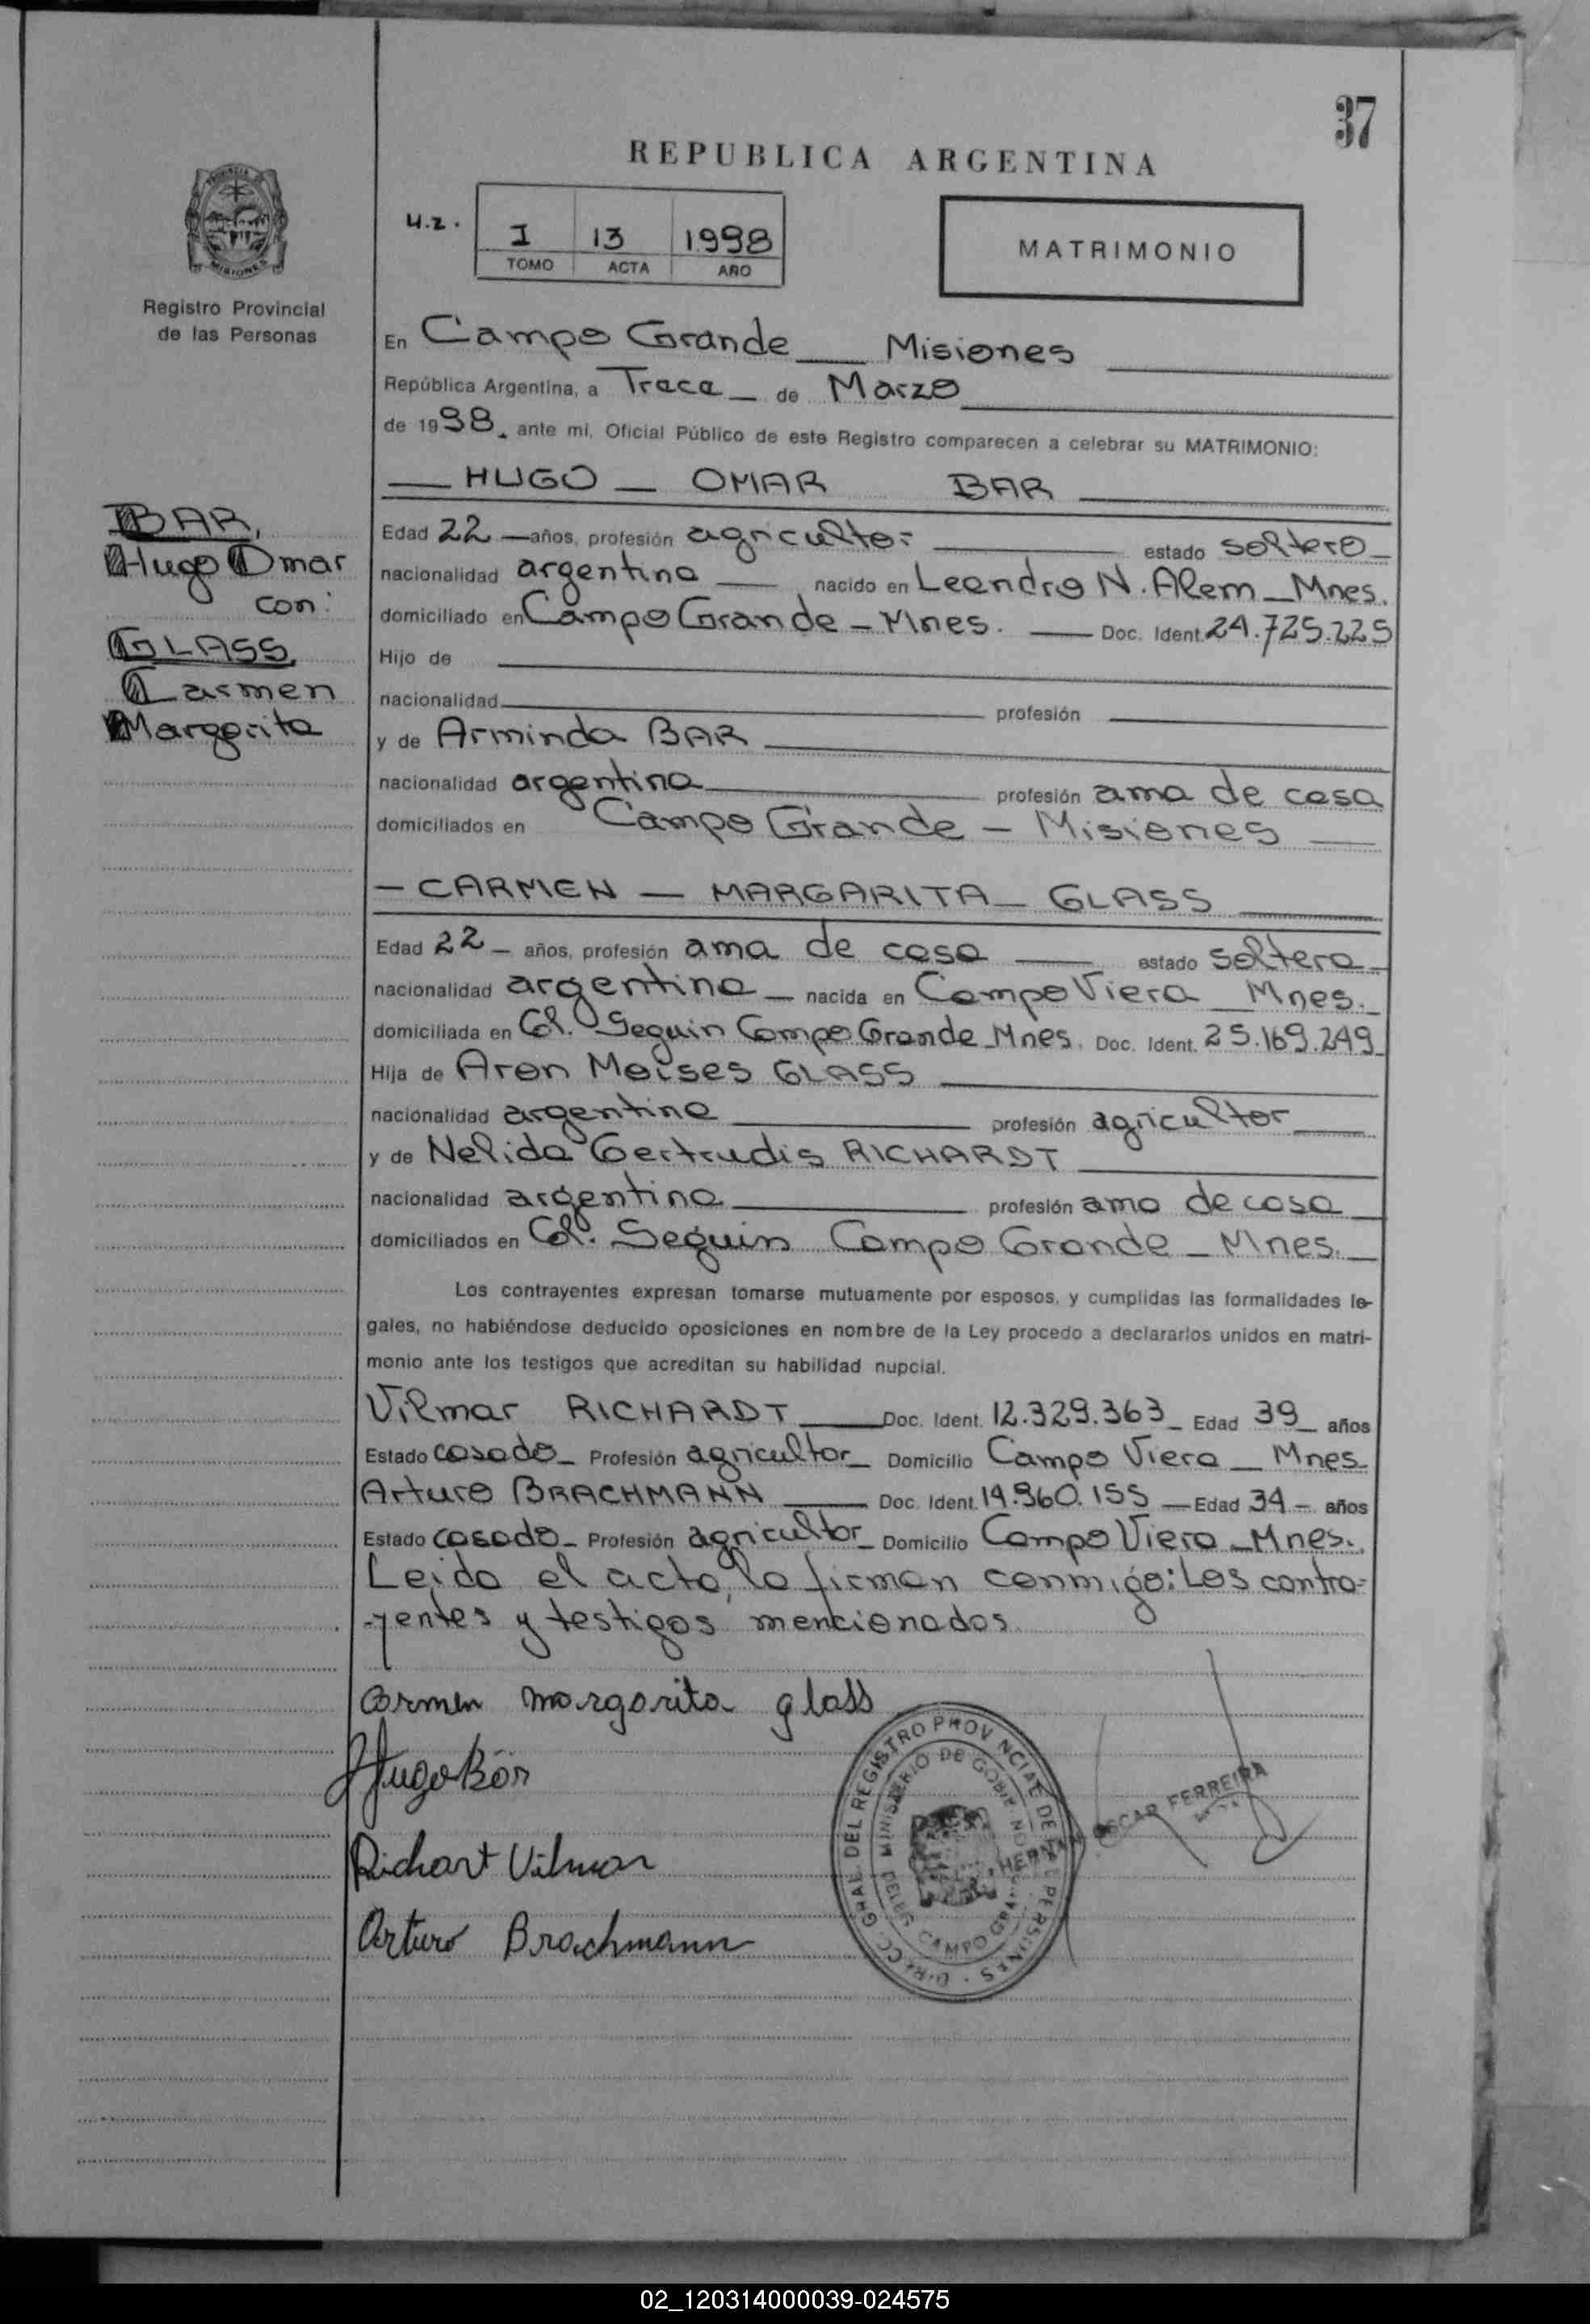 37
REPUBLICA ARGENTINA
Registro Provincial
de las Personas
U.Z. I 13 1998
TOMO ACTA AÑO
MATRIMONIO
En Campo Grande Misiones
República Argentina, a Trece de Marzo
de 1998 ante mi, Oficial Público de este Registro comparecen a celebrar su MATRIMONIO:
HUGO OMAR BAR
BAR,
Hugo Omar
con:
GLASS,
Carmen
Margarita
Edad 22 años, profesión agricultor estado soltero
nacionalidad argentina nacido en Leandro N. Alem Mnes.
domiciliado en Campo Grande - Mnes. Doc. Ident. 24.725.225
Hijo de
nacionalidad profesión
y de Arminda BAR
nacionalidad argentina profesión ama de casa
domiciliados en Campo Grande - Misiones
- CARMEN - MARGARITA GLASS
Edad 22 - años, profesión ama de casa estado soltera
nacionalidad argentina nacida en Campo Viera Mnes.
domiciliada en Col. Seguin Campo Grande Mnes. Doc. Ident. 25.169.249
Hija de Aron Moises GLASS
nacionalidad argentina profesión agricultor
y de Nelida Gertrudis RICHARDT
nacionalidad argentina profesión ama de casa
domiciliados en Col. Seguin Campo Grande - Mnes.
Los contrayentes expresan tomarse mutuamente por esposos, y cumplidas las formalidades le-
gales, no habiéndose deducido oposiciones en nombre de la Ley procedo a declararlos unidos en matri-
monio ante los testigos que acreditan su habilidad nupcial.
Vilmar RICHARDT Doc. Ident. 12.329.363 Edad 39 años
Estado casado Profesión agricultor Domicilio Campo Viera Mnes.
Arturo BRACHMANN Doc. Ident. 14.960.155 Edad 34 - años
Estado casado Profesión agricultor Domicilio Campo Viera Mnes.
Leida el acta, la firman conmigo: Los contra-
-yentes y testigos mencionados
Carmen margarita glass
Hugo Bär
Richart Vilmar
Arturo Brachmann
DIRECC. GRAL DEL REGISTRO PROVINCIAL DE
MINISTERIO DE GOBIERNO
CAMPO GRANDE
OSCAR FERREIRA
02_120314000039-024575